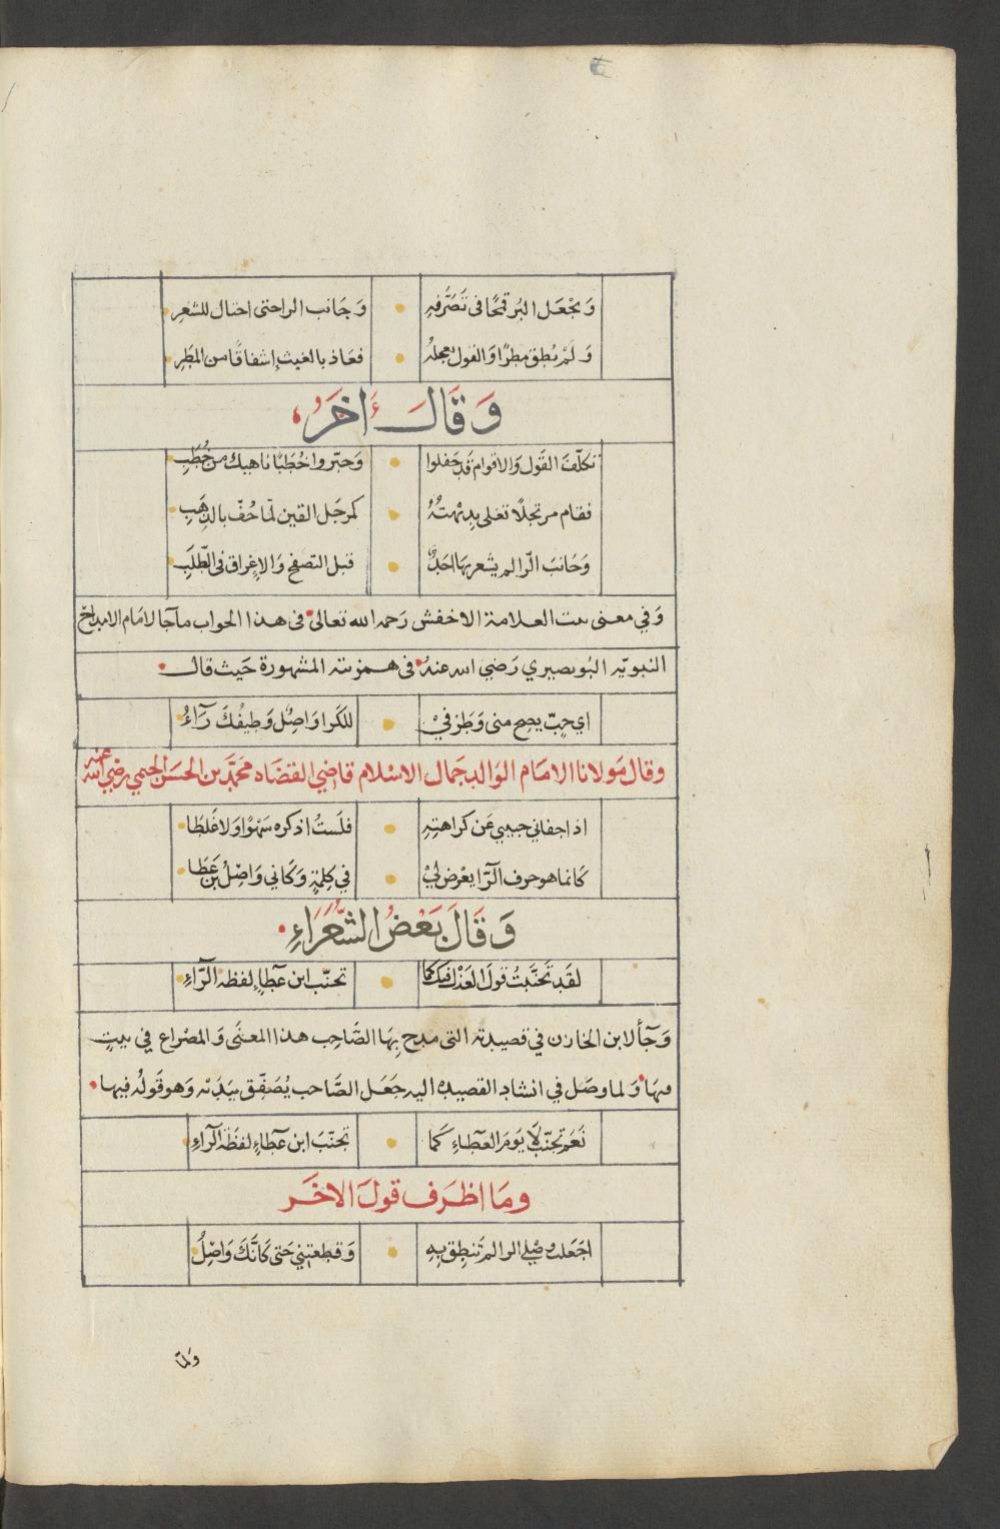 وَيجْعَل البُر قمْحًا فى تَصَرُّفِهِ • وَجَانب الرا حتى احتال للشعرِ
وَلَمْ يُطِق مطرًا وَالقول يعجلُه • فعَاذ بالغيث إشفاقًا من المطَرِ
وَقَالَ ءَاخَرُ
تكلّفَ القَول وَالاقوام قَد حَفلوا • وَحبّروا خُطَبًا ناهيك من خُطَبِ
فقام مرتجلًا تغلى بدِيْهتُهُ • كمرجَل القين لمّا حُفّ بالدّهَبِ
وَجَانبَ الرّا لم يشعر بهَا احَدٌ • قبل التصفح وَالاِغراق فى الطّلَبِ
وَفي معنى بيت العلامة الاخفش رَحمه الله تعالى فى هذا الجواب ما جآ لامَام الامداح
النبويّه البُوصيري رَضي الله عنهُ فى همزيته المشهورة حَيث قال
اي حبّ يصح منى وَطَرْفيْ • للكَرا وَاصِلٌ وَطيفُكَ رَآءُ
وقال مَولانا الامَام الوَالد جَمال الاسْلام قاضي القضَاه محَمَّد بن الحسَن الحيمي رضي الله عنه
اذا جفاني حبيبي عَن كراهتِهِ • فلَستُ اذكره سَهْوًا وَلا غَلطَا
كَانما هو حرف الرّا يعْرض لِيْ • في كِلمَةٍ وَكَاني وَاصِلُ بن عَطَا
وَقَالَ بَعْضُ الشُّعَرَاءِ
لقَد تَجنّبتُ قولَ العَذْل فيك كمَا • تجنّب ابن عَطاءٍ لفظه الرّاءِ
وَجَآ لابن الخازن في قصيدته التى مدح بِهَا الصَّاحِب هذا المعنَى وَالمصْراع في بيتٍ
منهَا وَلما وصَل في انشاد القصيده اليه جَعَل الصَّاحب يُصَفّق بيَدَيْه وَهو قَولهُ فيها
نَعَم تجنّبَ لَا يَومَ العَطاءِ كَما • تجنّبَ ابن عَطاءٍ لفظَه الرّاءِ
ومَا اظرَف قولَ الاخَر
اجَعَلت وصْلي الرا لم تَنطِق بِهِ • وَقطعتِني حَتى كَانّكَ وَاصِلُ
وَلمّا